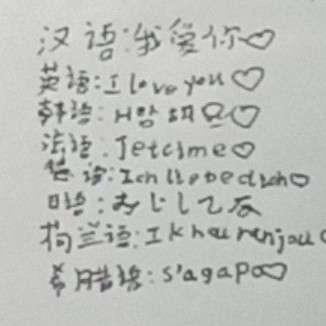 汉语:我爱你♡
英语:I love you♡
韩语:사랑해요♡
法语:Jetaime♡
德语:Ichliebedich♡
日语:あいしてる
荷兰语:Ikhouvanjou♡
希腊语:s'agapo♡